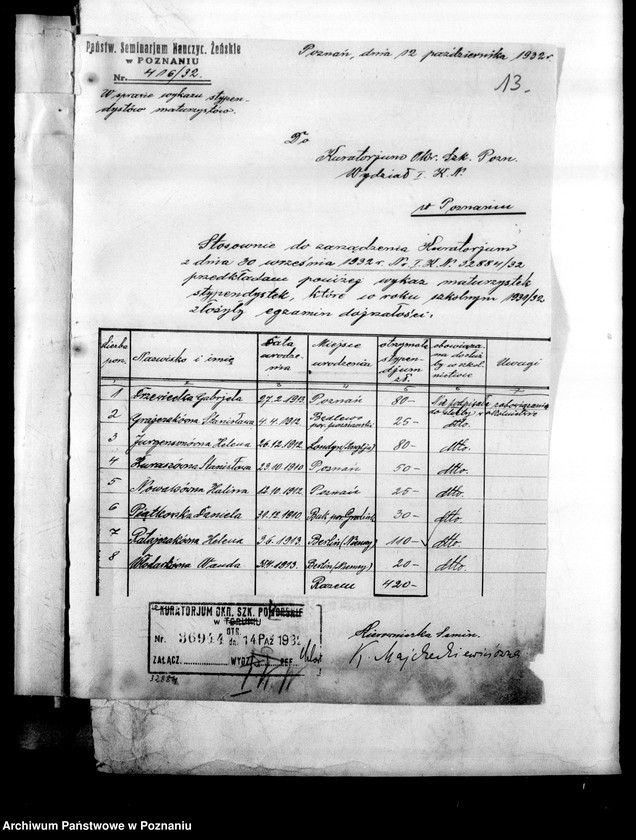 Państw. Seminarjum Nauczyc. Żeńskie
w POZNANIU
Nr. 416/32.
Poznań, dnia 12 października 1932 r.
13.
W sprawie wykazu stypen-
dystów maturzystów.
Do
Kuratorjum Okr. Szk. Pozn.
Wydział I. K. N.
w Poznaniu
Stosownie do zarządzenia Kuratorjum
z dnia 30 września 1932 r. Nr. I. K. N. 32884/32
przedkładam poniżej wykaz maturzystek
stypendystek, które w roku szkolnym 1930/32
złożyły egzamin dojrzałości:
Liczba porz. Nazwisko i imię Data urodze-nia Miejsce urodzenia otrzymała stypen-djum zł. obowiąza-na do służ-by w szkol-nictwie Uwagi
1 2 3 4 5 6 7
1 Drzewiecka Gabrjela 27.2.1912 Poznań 80- Nie podpisała zobowiązania do służby w szkolnictwie
2 Grajerskówna Stanisława 4.4.1912. pow. poznański 25- dtto.
3 Helena 26.12.1912 Londyn (Anglja) 80- dtto.
4 Stanisława 29.10.1910 Poznań 50- dtto.
5 Nowakówna Halina 12.10.1912. Poznań 25- dtto.
6 Piątkowska Daniela 31.12.1910. Buk pow. Grodzisk 30- dtto.
7 Ratajczakówna Helena 9.6.1913. Berlin (Niemcy) 110- dtto.
8 Włodarkówna Wanda 1913. Berlin (Niemcy) 20- dtto.
Razem 420-
KURATORJUM OKR. SZK. POMORSKIE
w TORUNIU
OTR.
Nr. 36944 dn. 14 PAŹ 1932
ZAŁĄCZ. WYDZ. REF.
I K N
32884
Kierowniczka Semin.
K. Majchrkiewiczówna
Archiwum Państwowe w Poznaniu